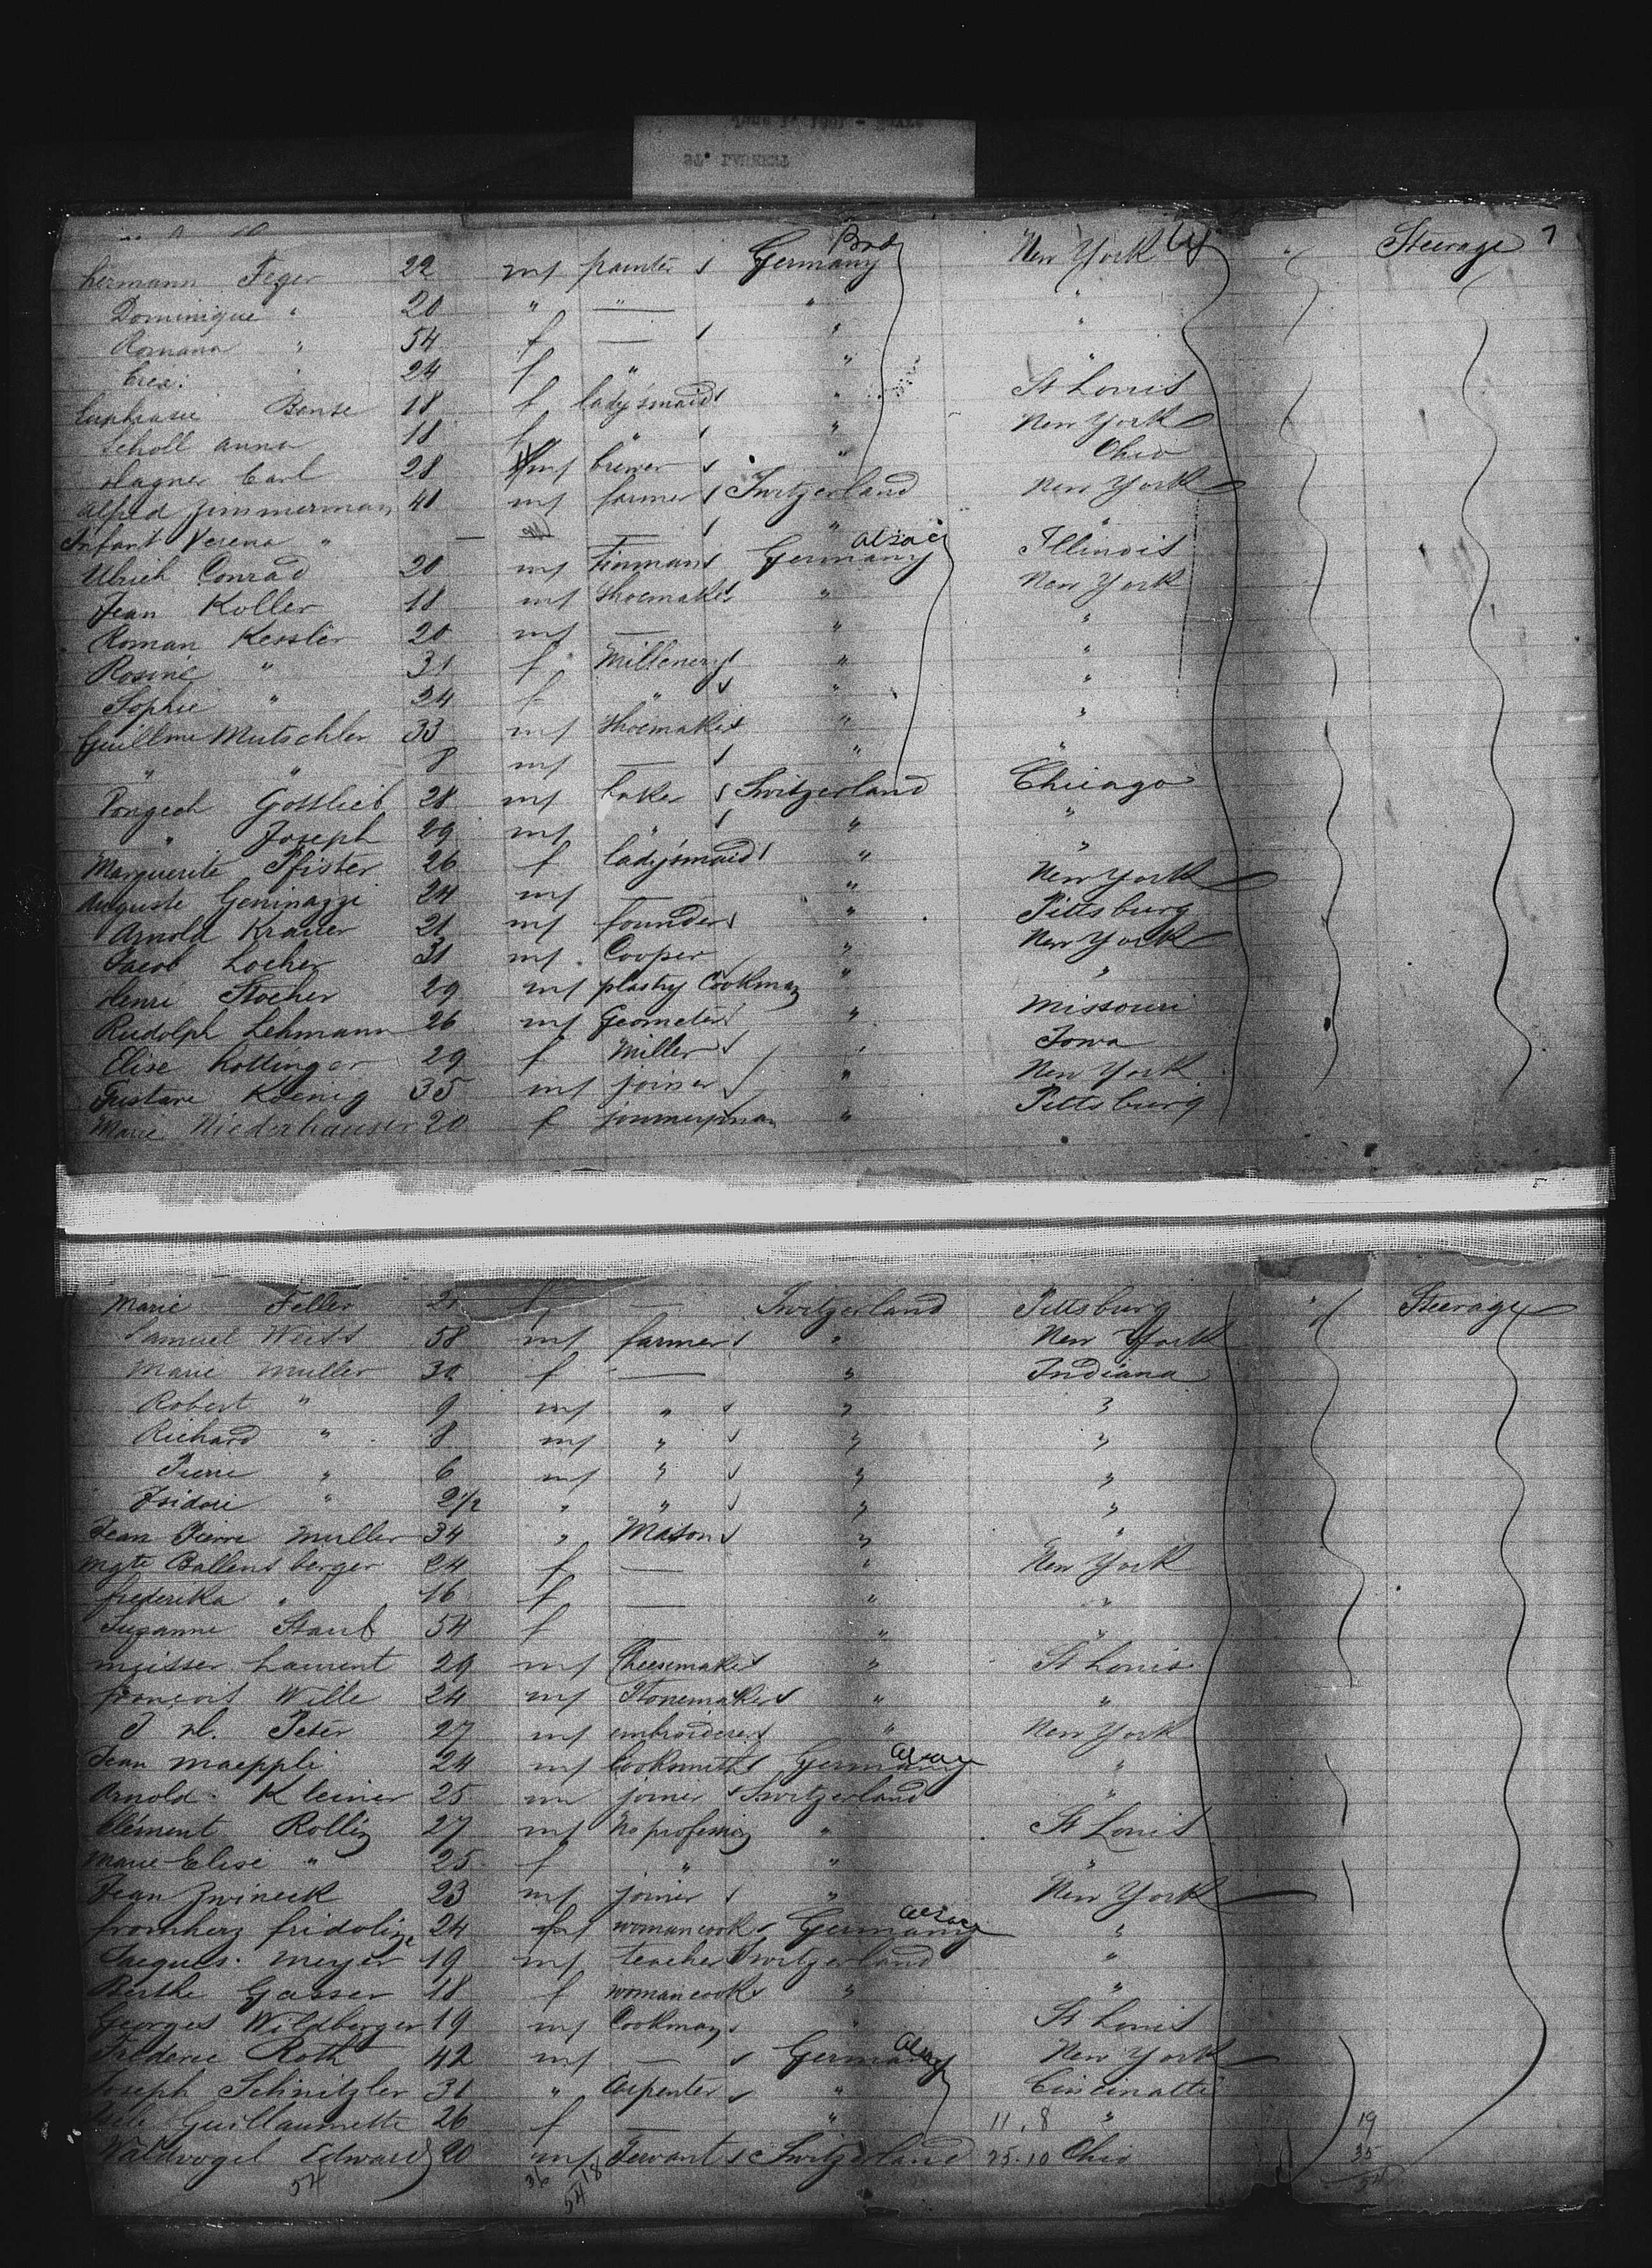 Hermann Feger 22 m painter Germany Bad New York " Steerage 7
Dominique " 20 " — " "
Romana " 54 f — " "
Cres. " 24 f " " "
Euphrasie Bense 18 f lady'smaid " St Louis
Scholl Anna 18 f " " New York
Wagner Carl 28 m brewer " Ohio
Alfred Zimmerman 41 m farmer Switzerland New York
Infant Verena " — — " "
Ulrich Conrad 20 m Germany Alsace Illinois
Jean Koller 18 m Shoemaker " New York
Roman Kessler 20 m — " "
Rosine " 31 f Millenery " "
Sophie " 24 f " " "
Guillme Mutschler 33 m Shoemaker " "
" " 8 m — " "
Gottlieb 28 m baker Switzerland Chicago
" Joseph 29 m " " "
Marguerite Pfister 26 f lady'smaid " "
Auguste Geninazzi 24 m — " New York
Arnold Krauer 21 m founder " Pittsburg
Jacob Locher 31 m Cooper " New York
Henri Stocher 29 m plastry Cookman " "
Rudolph Lehmann 26 m Geometer " Missouri
Elise Hottinger 29 f Miller " Iowa
Gustave Koenig 35 m joiner " New York
Marie Niederhauser 20 f " Pittsburg
Marie Feller f — Switzerland Pittsburg " Steerage
Samuel Weiss 58 m farmer " New York
Marie Muller 30 f — " Indiana
Robert " 9 m " " "
Richard " 8 m " " "
Pierre " 6 m " " "
Isidore " 2 1/2 " " " "
Jean Pierre Muller 34 " Mason " "
Mgte Ballensberger 24 f — " New York
frederika " 16 f — " "
Suzanne Staub 54 f — " "
Meisser Laurent 29 m Cheesemaker " St Louis
francois Wille 24 m Stonemaker " "
J. H. Peter 27 m embroiderer " New York
Jean Maeppli 24 m Locksmith Germany Alsace "
Arnold Kleiner 25 m joiner Switzerland "
Clément Rollin 27 m No profession " St Louis
Marie Elise " 25 f " " "
Jean Zwineck 23 m joiner " New York
fromherz fridoline 24 f woman cook Germany Alsace "
Jacques Meyer 19 m teacher Switzerland "
Berthe Gasser 18 f woman cook " "
Georges Wildberger 19 m Cookman " St Louis
Frédéric Roth 42 m — Germany Alsace New York
Joseph Schnitzler 31 " Carpenter " Cincinatti
Guillaumette 26 f — " 11.8 " 19
Waldvogel Edward 20 m Servant Switzerland 25.10 Ohio 35
54 36 18 54 54